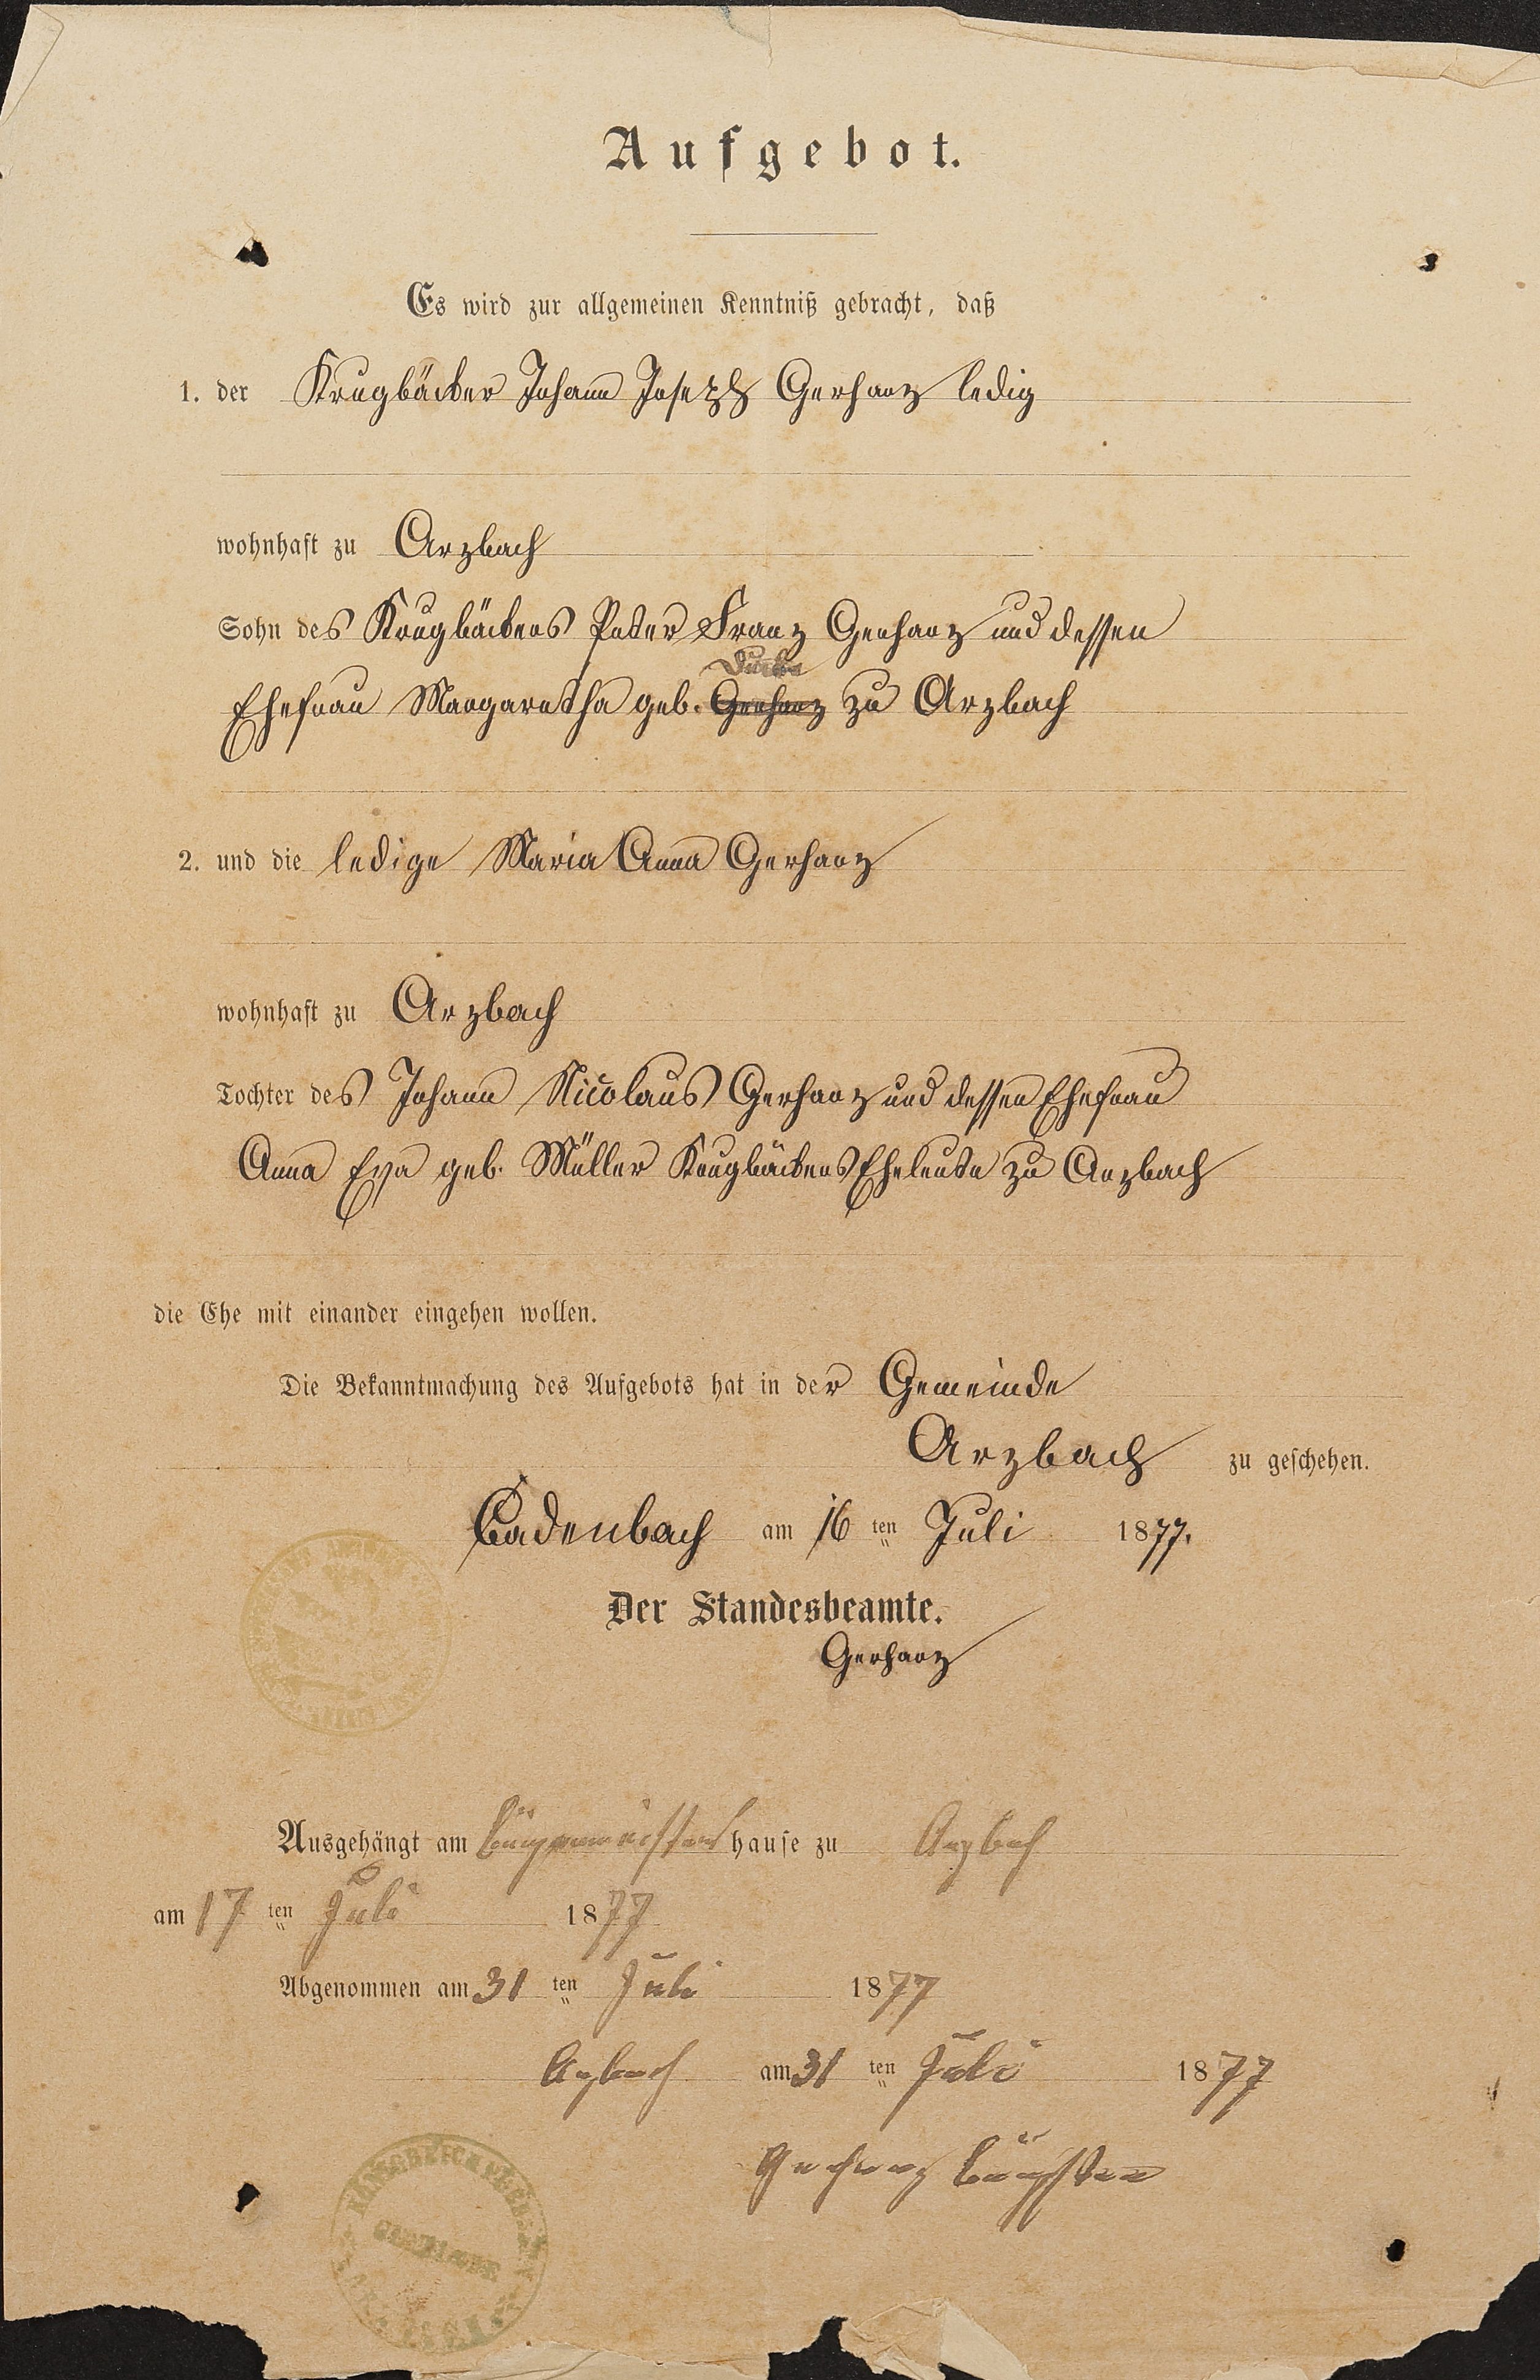 Aufgebot.
Es wird zur allgemeinen Kenntniß gebracht, daß
1. der Krugbäcker Johann Joseph Gerharz ledig
wohnhaft zu Arzbach
Sohn des Krugbäckers Peter Franz Gerharz und dessen
Ehefrau Margaretha geb. Gerharz zu Arzbach
2. und die ledige Maria Anna Gerharz
wohnhaft zu Arzbach
Tochter des Johann Nicolaus Gerharz und dessen Ehefrau
Anna Eva geb. Müller Krugbäckers Eheleute zu Arzbach
die Ehe mit einander eingehen wollen.
Die Bekanntmachung des Aufgebots hat in der Gemeinde
Arzbach zu geschehen.
Cadenbach am 16 ten Juli 1877.
Der Standesbeamte.
Gerharz
Ausgehängt am Bürgermeisters hause zu Arzbach
am 17 ten Juli 1877
Abgenommen am 31 ten Juli 1877
Arzbach am 31 ten Juli 1877
Gerharz
KÖNIGREICH PREUSSEN